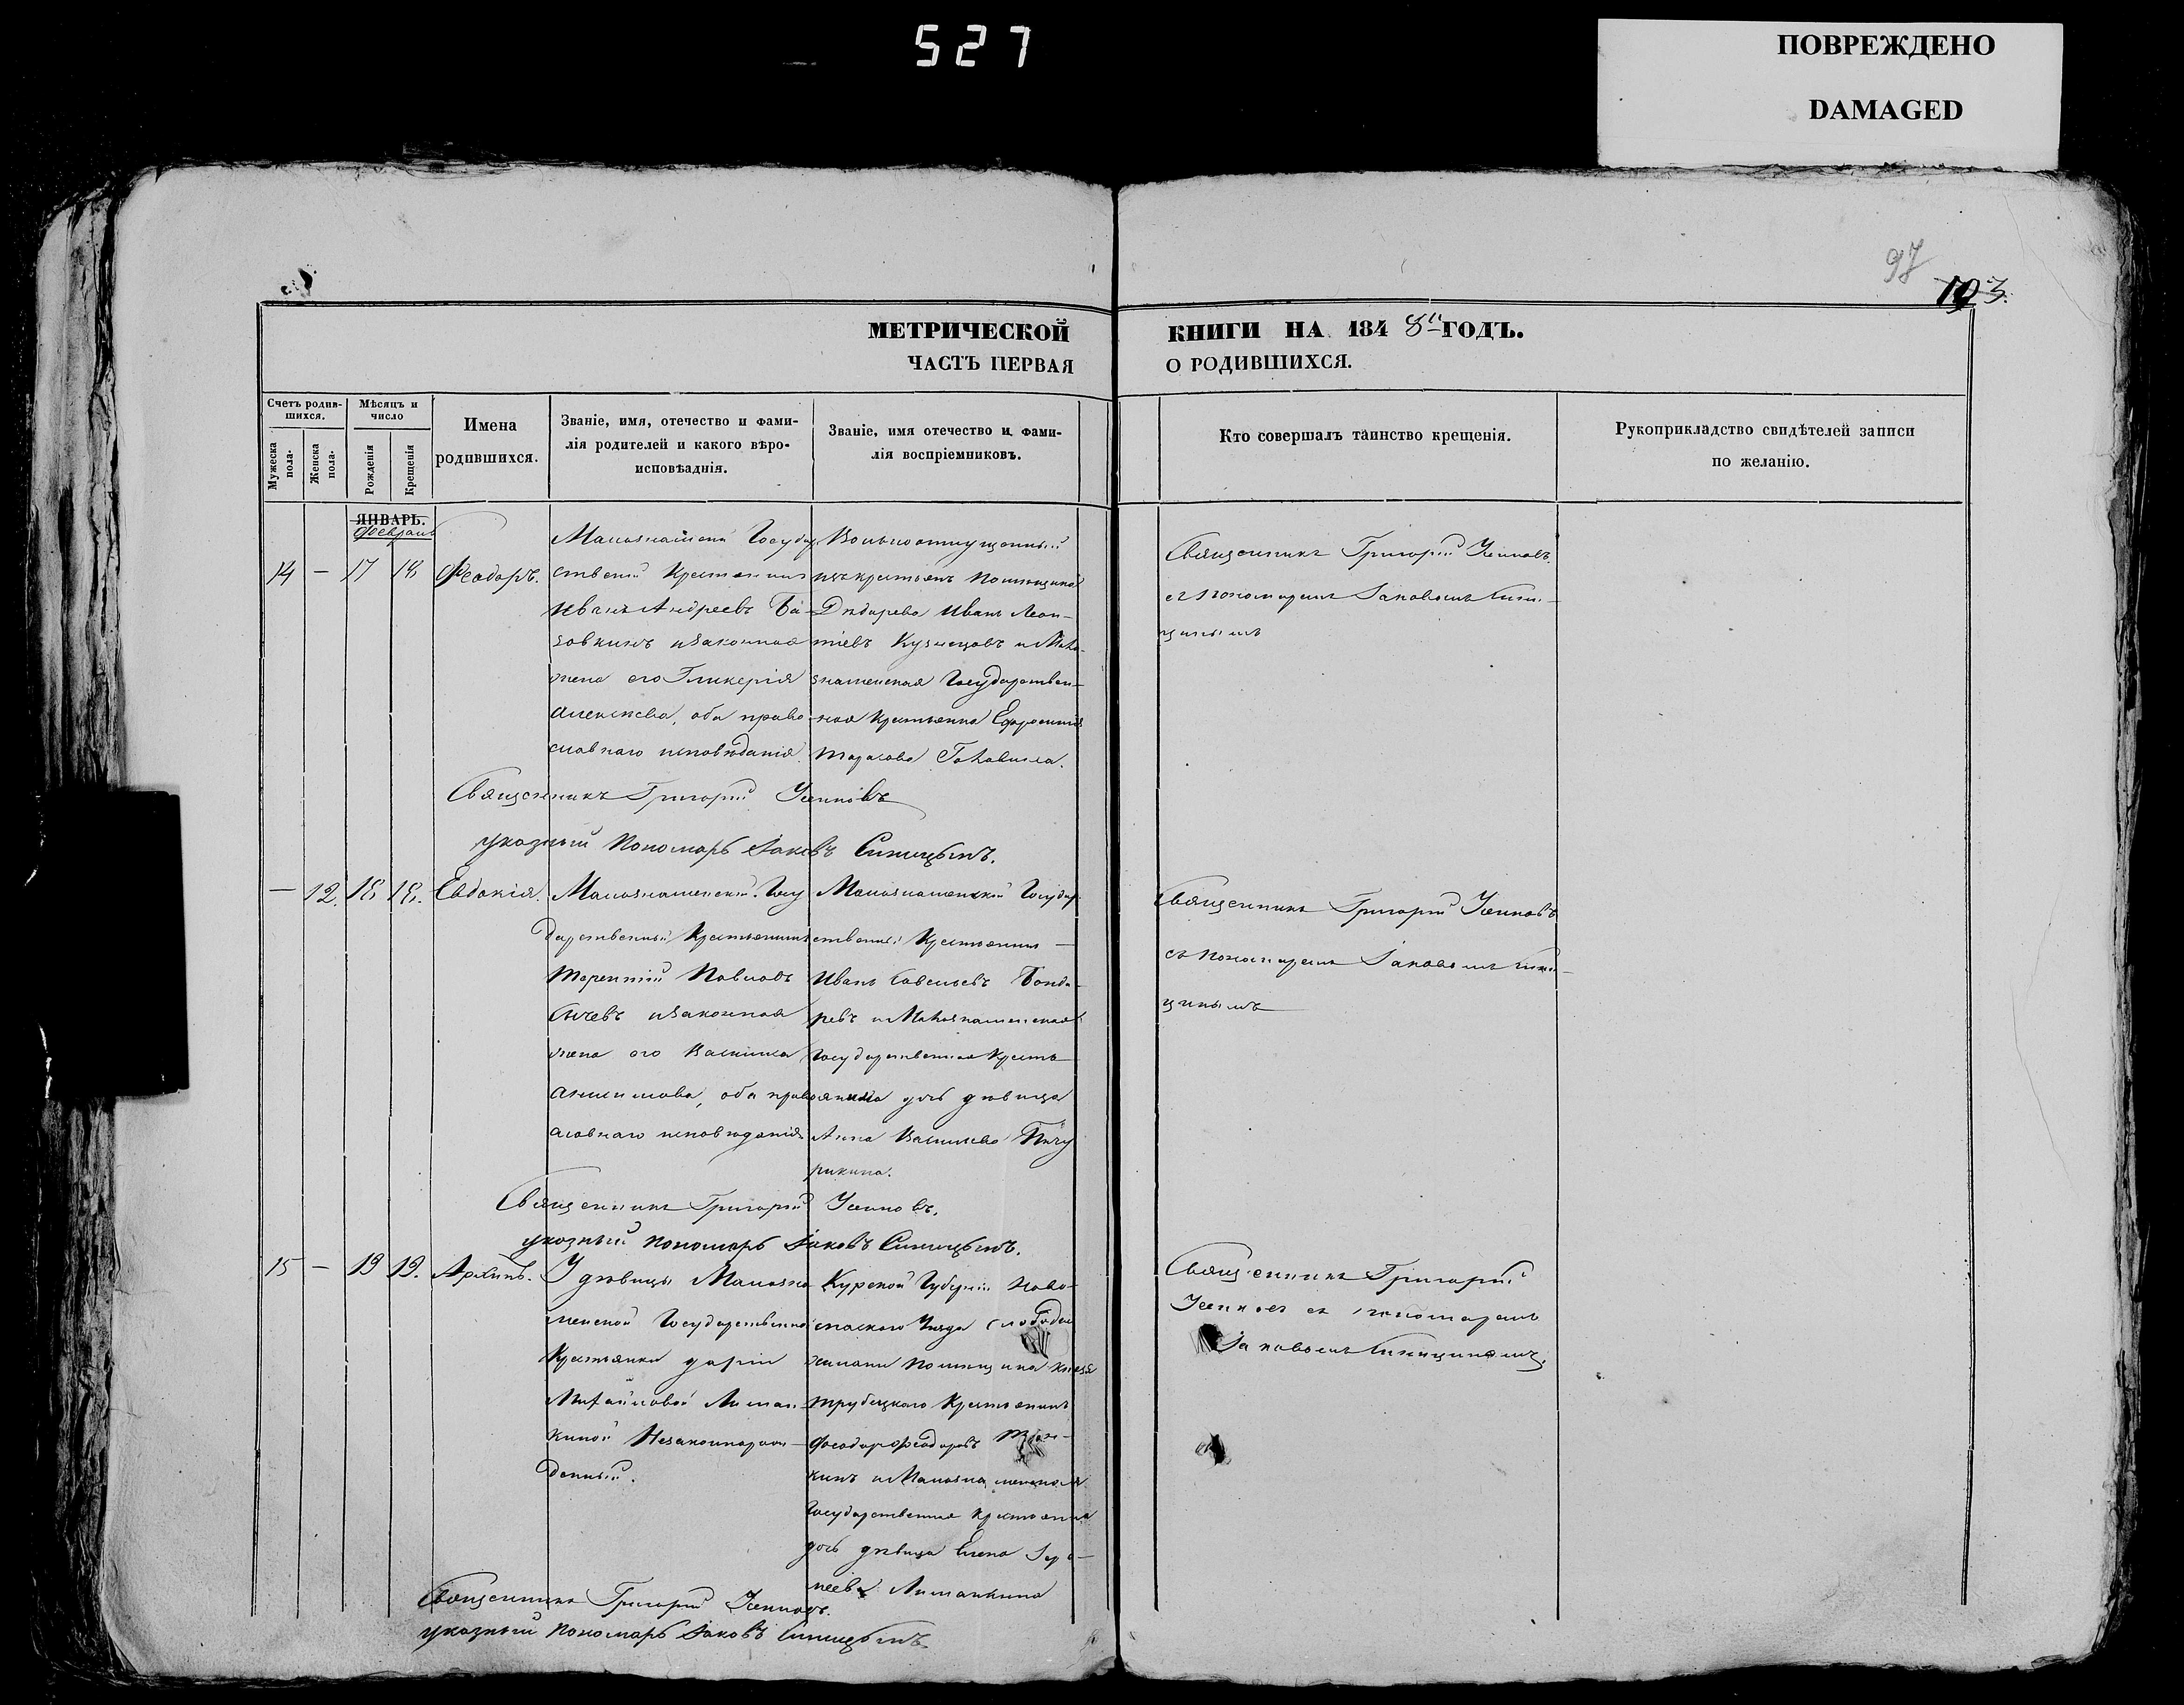 527
ПОВРЕЖДЕНО
DAMAGED
97
103.
МЕТРИЧЕСКОЙ КНИГИ НА 1848й ГОДЪ.
ЧАСТЬ ПЕРВАЯ О РОДИВШИХСЯ.
Счетъ родив-
шихся.
Мужеска
пола.
Женска
пола.
Мѣсяцъ и
число
Рожденія
Крещенія
Имена
родившихся.
Званіе, имя, отечество и фами-
лія родителей и какого вѣро-
исповѣаднія.
Званіе, имя отечество и фами-
лія воспріемниковъ.
Кто совершалъ таинство крещенія.
Рукоприкладство свидѣтелей записи
по желанію.
ЯНВАРЬ.
Февраль
14 — 17 18 Феодоръ.
Малознаменской Государ
ственный Крестьянинъ
Иванъ Андреевъ Ба-
зовкинъ и законная
жена его Гликерія
Алексѣева, оба право
славнаго исповѣданія.
Вольноотпущенный
изъ крестьянъ Помѣщика
Дѣдарева Иванъ Леон-
тіевъ Кузнецовъ и Мало-
знаменская Государствен-
ная Крестьянка Ефросинія
Тарасова
Священникъ Григорій
съ пономаремъ Іаковомъ Сини-
цинымъ
Священникъ Григорій
указный Пономарь Іаковъ Синицынъ.
— 12. 18 18. Евдокія.
Малознаменской Госу
дарственный Крестьянинъ
Терентій Павловъ
Сычевъ и законная
жена его Василиса
Анисимова, оба право
славнаго исповѣданія
Малознаменской Государ
ственный Крестьянинъ —
Иванъ Савельевъ Бонда-
ревъ и Малознаменская
Государственная Кресть-
янина дочь дѣвица
Анна Васильева Пичу
рикина.
Священникъ Григорій
съ пономаремъ Іаковомъ Сини-
цинымъ
Священникъ Григорій
указный пономарь Іаковъ Синицынъ.
15 — 19 19. Архипъ.
У дѣвицы Малозна
менской Государственной
Крестьянки Даріи
Михайловой Лиман-
киной Незаконнорож-
денный.
Курской Губерніи Ново-
скаго Уѣзда Слободы
Помѣщика Князя
Трубецкаго Крестьянинъ
Феодоръ Феодоровъ
кинъ и Малознаменская
Государственная Крестьянина
дочь дѣвица Елена
Лиманкина
Священникъ Григорій
съ пономаремъ
Іаковомъ Синицинымъ.
Священникъ Григорій
указный Пономарь Іаковъ Синицынъ